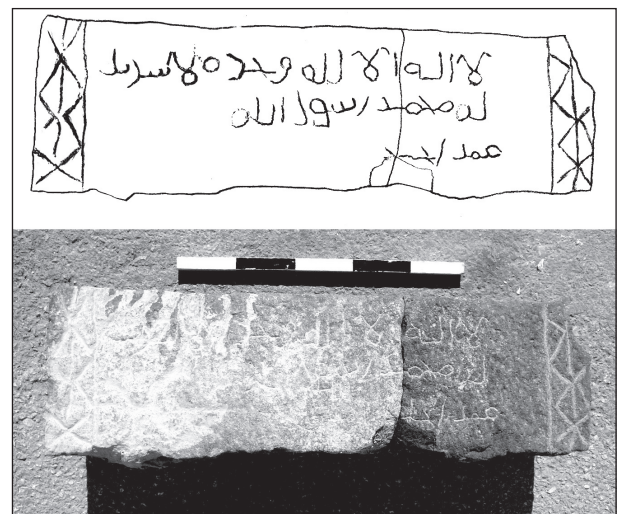 لا اله الا الله وحده لا شريك
له محمد رسول الله